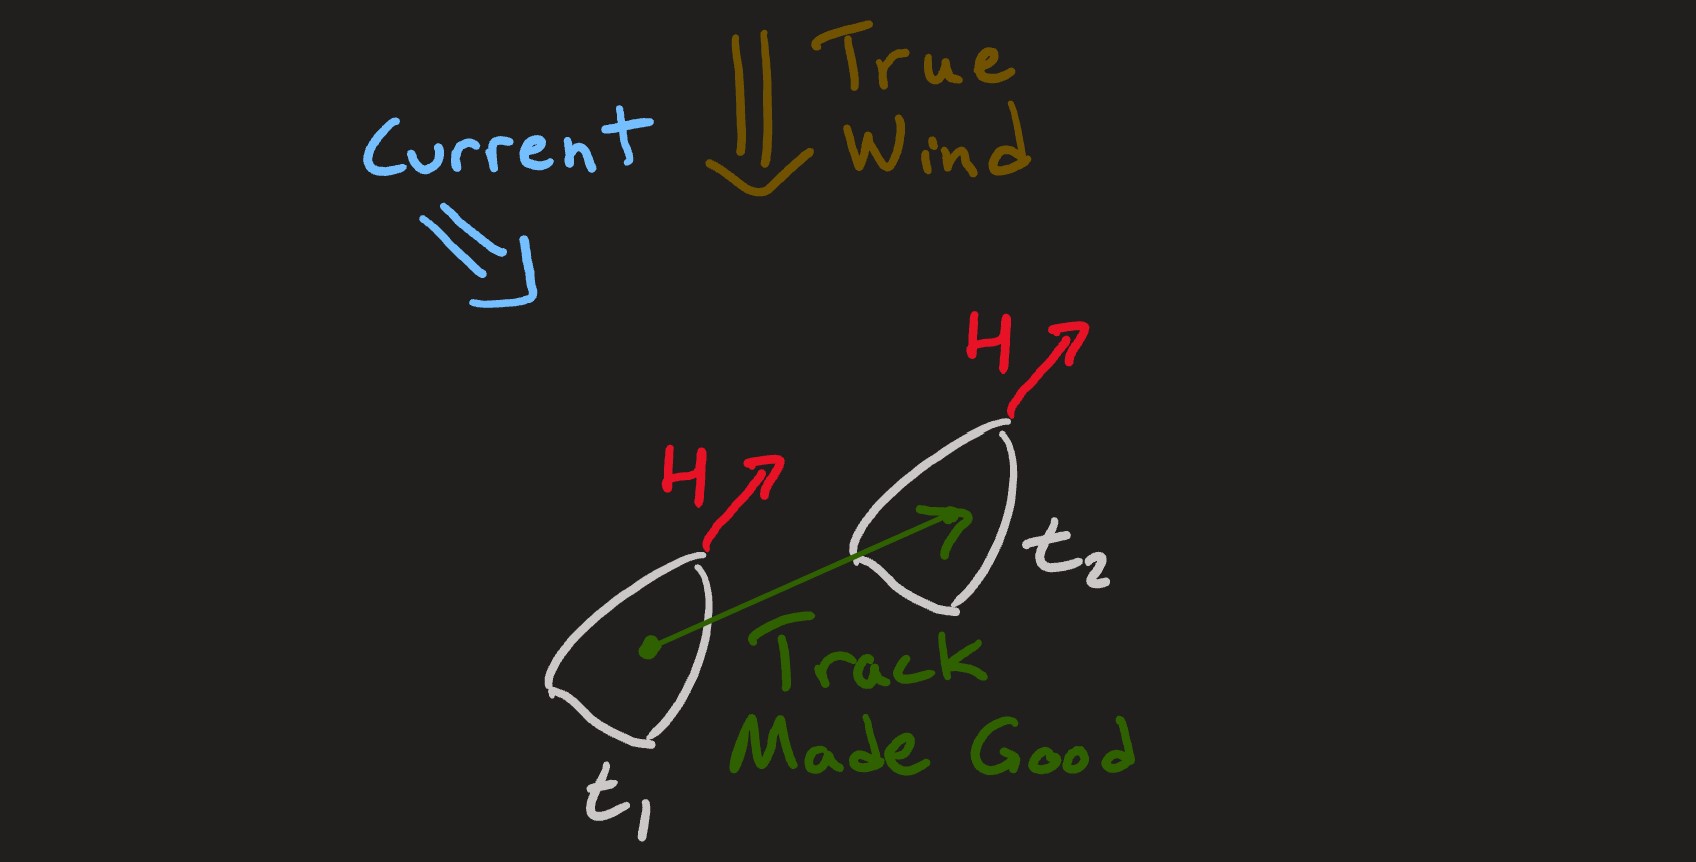 True
Wind
Current
H
H
t2
Track
Made Good
t1